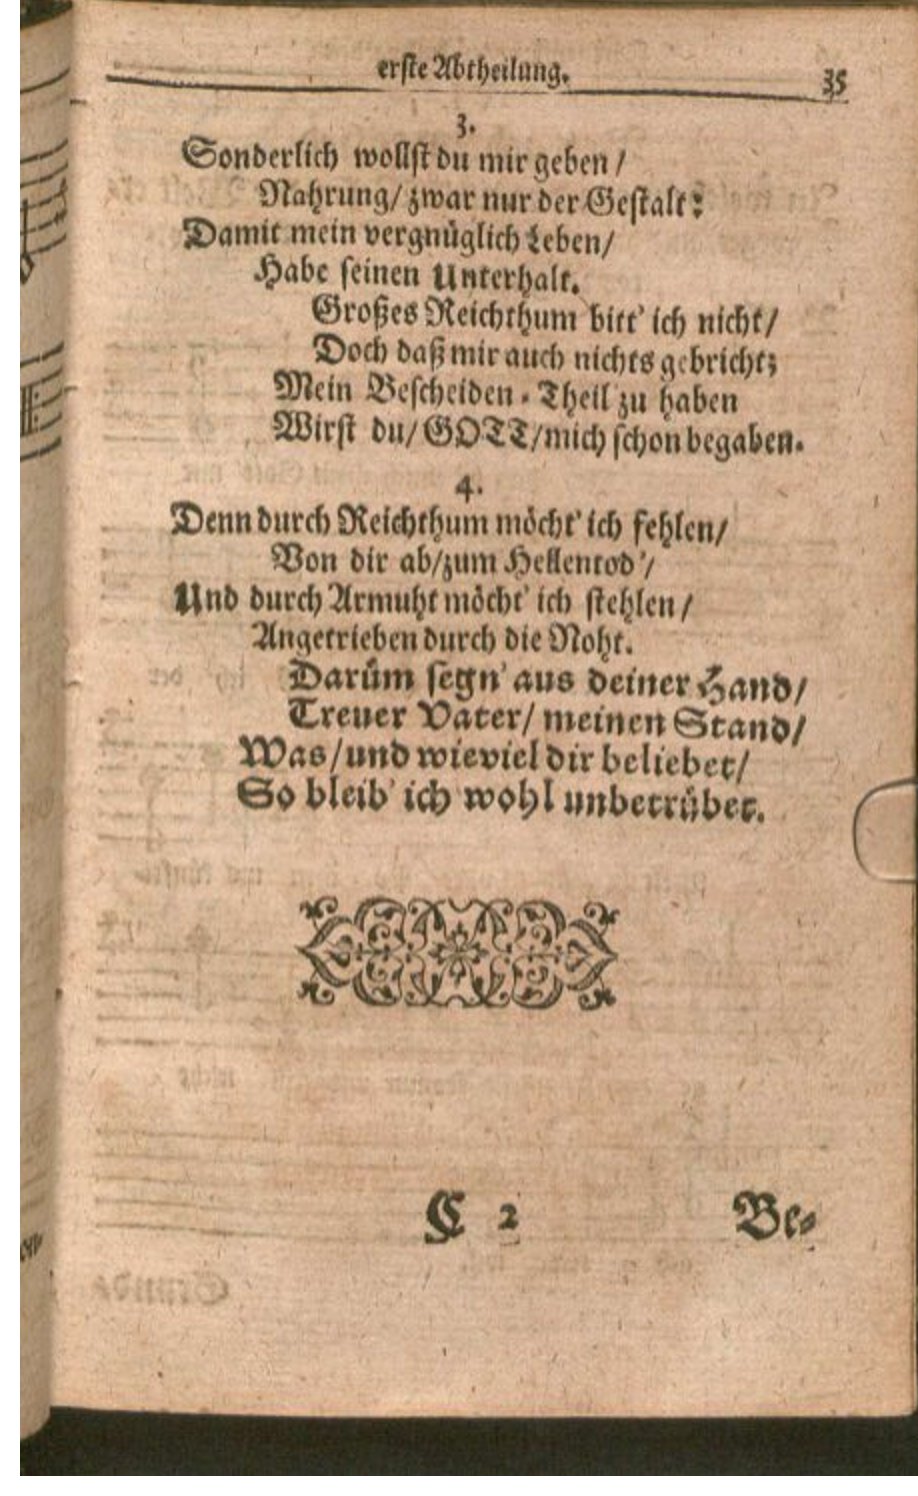 erſte Abtheilung. 35
3.
Sonderlich wollſt du mir geben /
Nahrung/ zwar nur der Geſtalt:
Damit mein vergnüglich Leben/
Habe ſeinen Unterhalt.
Großes Reichthum bitt' ich nicht/
Doch daß mir auch nichts gebricht;
Mein Beſcheiden-Theil zu haben
Wirſt du/ GOTT/ mich ſchon begaben.
4.
Denn durch Reichthum möcht' ich fehlen/
Von dir ab/zum Hellentod'/
Und durch Armuht möcht' ich ſtehlen/
Angetrieben durch die Noht.
Darům ſegn' aus deiner Hand/
Treuer Vater/ meinen Stand/
Was/und wieviel dir beliebet/
So bleib' ich wohl unbetrübet.
C 2 Be-